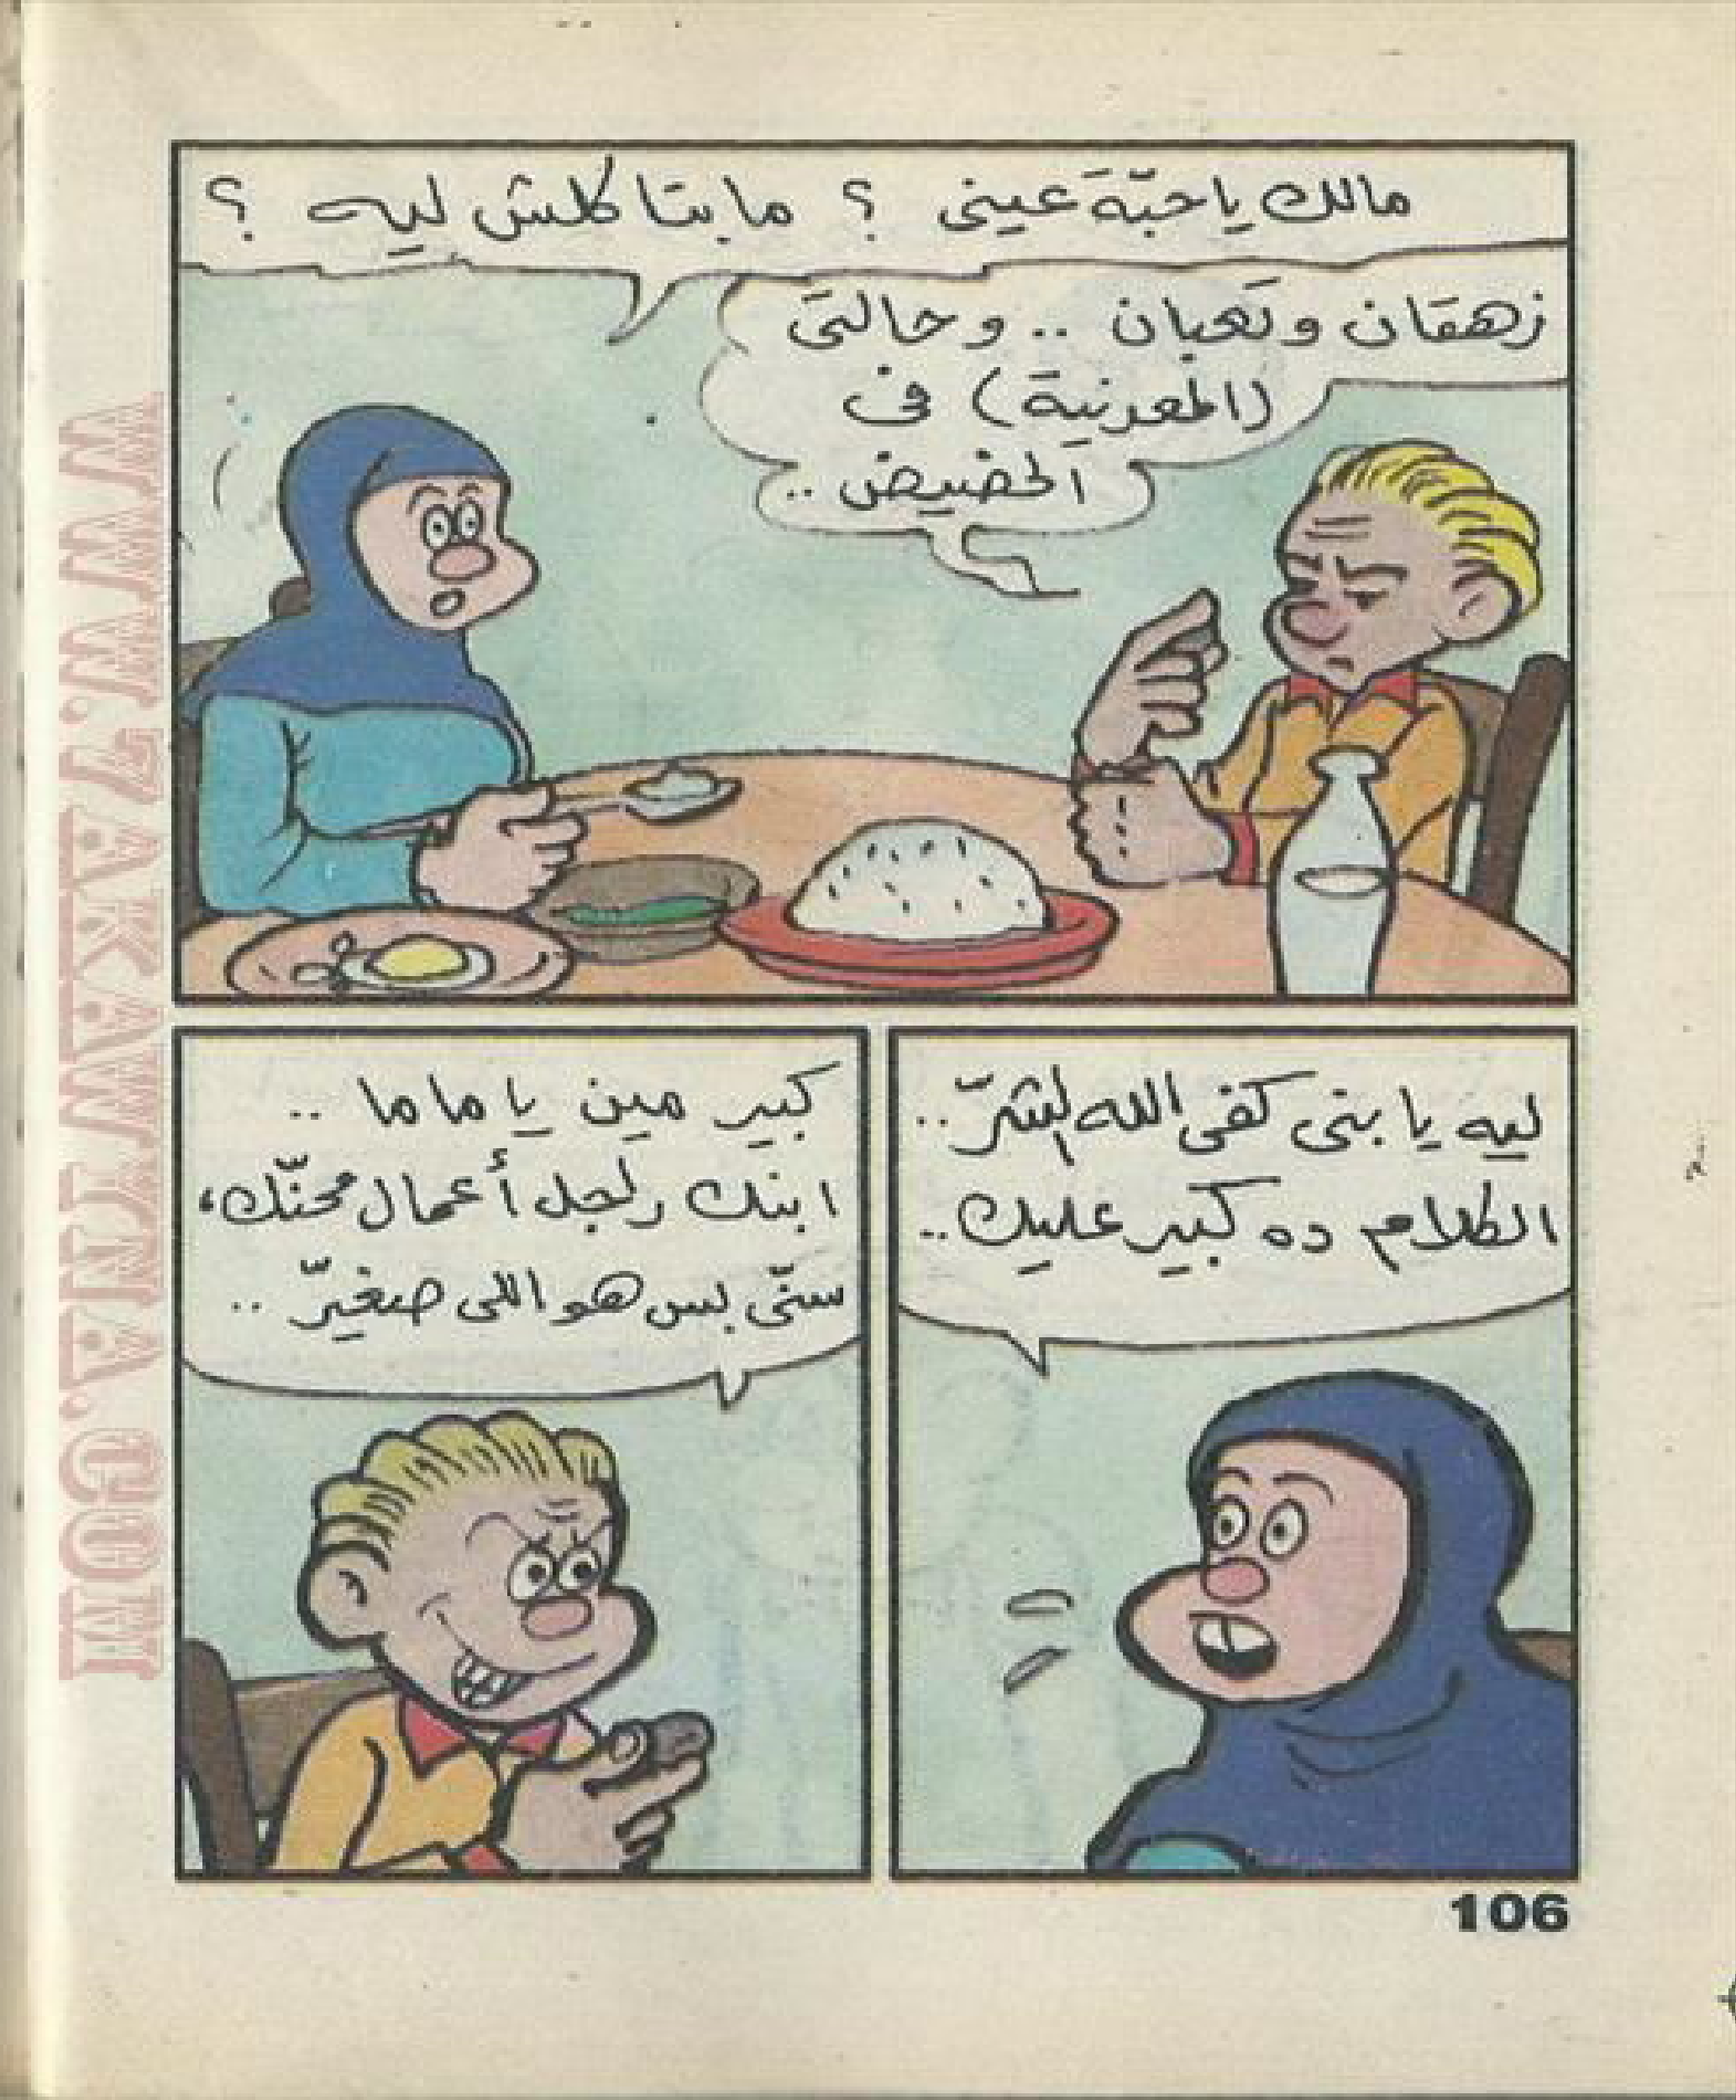 مالك يا حبّة عينى ؟ ما بتاكلش ليه ؟
زهقان وتعبان .. وحالتى
(المعدنية) فى
الحضيض ..
ليه يا بنى كفى الله الشرّ ..
الكلام ده كبير عليك ..
كبير مين يا ماما ..
ابنك راجل أعمال محنّك،
سنّى بس هو اللى صغيّر ..
106
WWW.7AKAWATTNA.COM